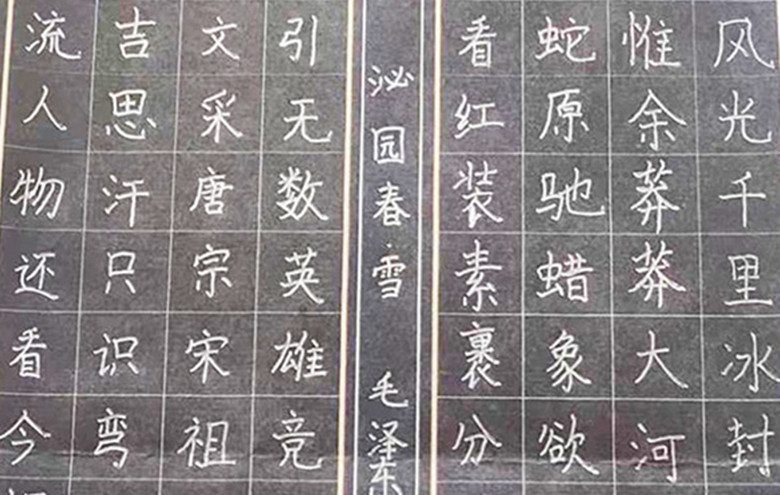 风光千里冰封
惟余莽莽大河
蛇原驰蜡象欲
看红装素裹分
沁园春·雪 毛泽东
引无数英雄竞
文采唐宗宋祖
吉思汗只识弯
流人物还看今